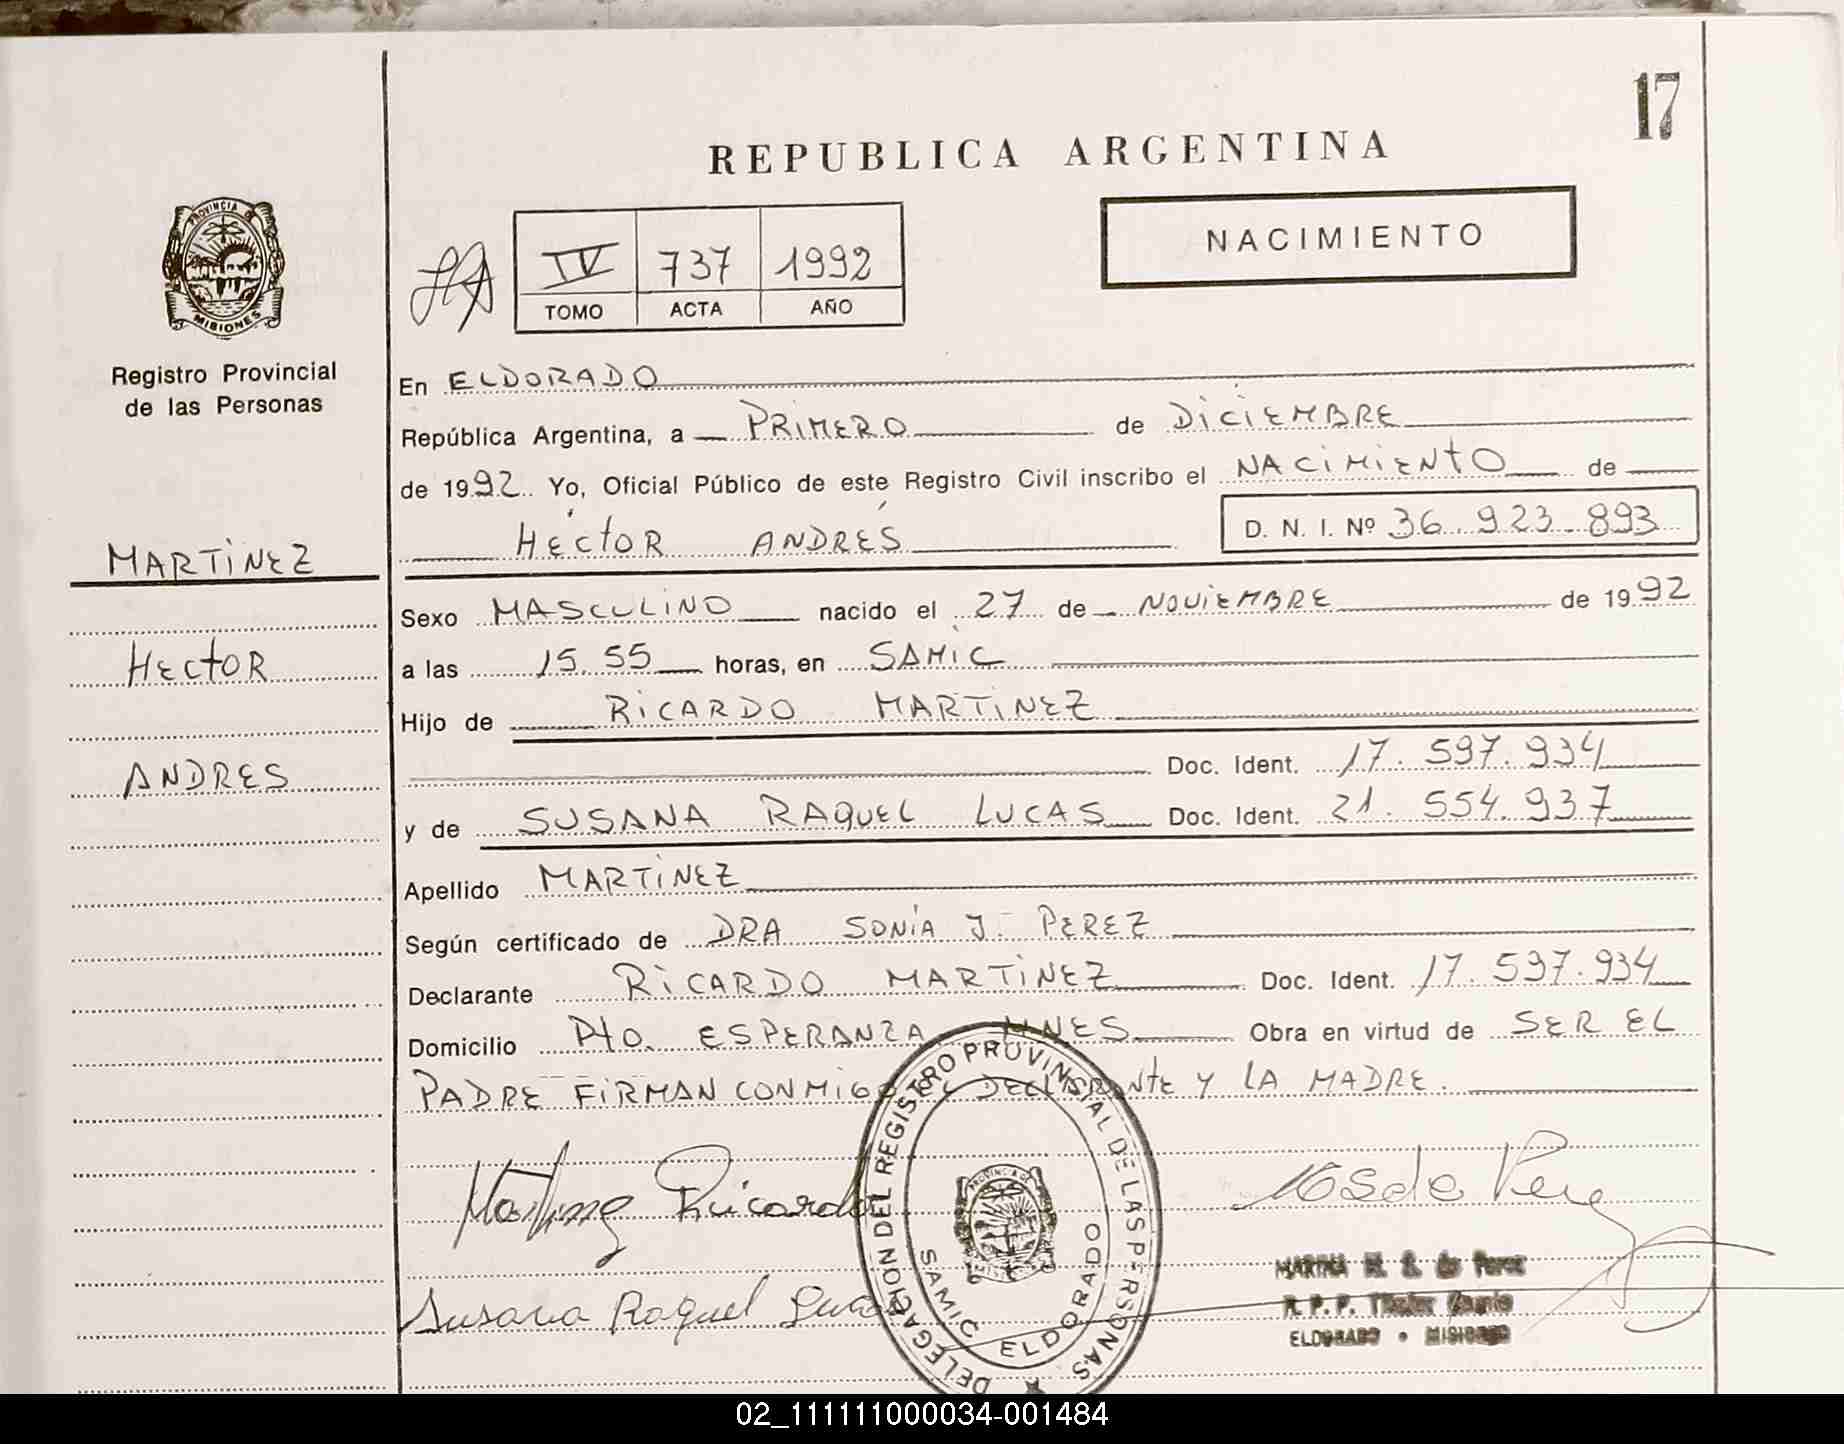 17
REPUBLICA ARGENTINA
NACIMIENTO
IV 737 1992
TOMO ACTA AÑO
PROVINCIA DE
MISIONES
Registro Provincial
de las Personas
MARTINEZ
HECTOR
ANDRES
En ELDORADO
República Argentina, a PRIMERO de DICIEMBRE
de 1992 Yo, Oficial Público de este Registro Civil inscribo el NACIMIENTO de
HÉCTOR ANDRÉS D. N. I. Nº 36.923.893
Sexo MASCULINO nacido el 27 de NOVIEMBRE de 1992
a las 15.55 horas, en SAMIC
Hijo de RICARDO MARTINEZ
Doc. Ident. 17.597.934
y de SUSANA RAQUEL LUCAS Doc. Ident. 21.554.937
Apellido MARTINEZ
Según certificado de DRA SONIA J. PEREZ
Declarante RICARDO MARTINEZ Doc. Ident. 17.597.934
Domicilio Pto. ESPERANZA MNES Obra en virtud de SER EL
PADRE FIRMAN CONMIGO EL DECLARANTE Y LA MADRE.
Martinez Ricardo
Susana Raquel Lucas
DELEGACION DEL REGISTRO PROVINSIAL DE LAS PERSONAS
SAMIC ELDORADO
MARTHA M. S. de Perez
R. P. P. Titular
ELDORADO - MISIONES
02_111111000034-001484